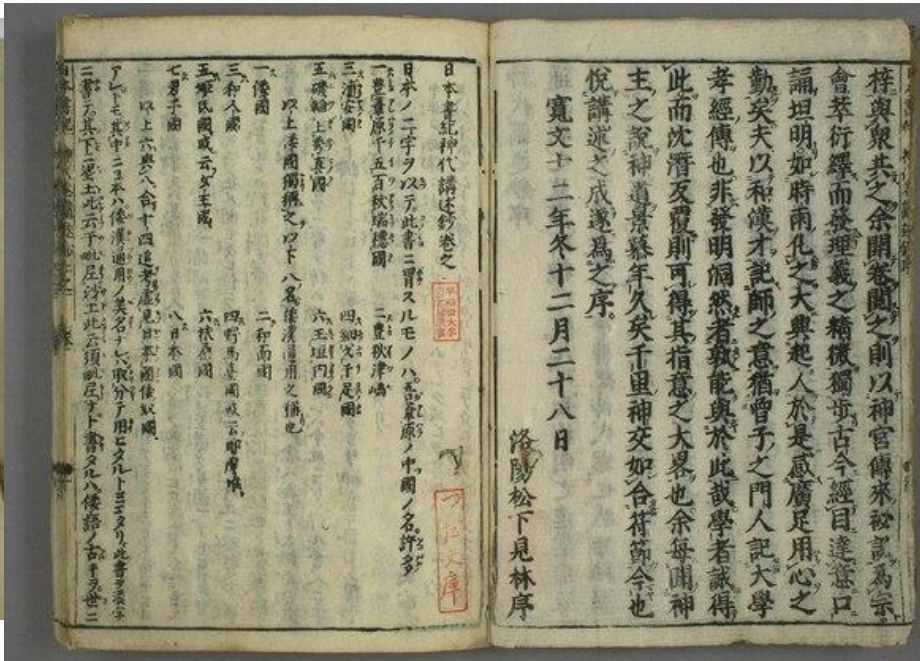 梓與衆共之余開卷閲之則以神官傳來祕説為宗
會萃衍繹而發理義之精微獨步古今經目達意口
誦坦明如時雨化之大興起人於是感廣足用心之
勤矣夫以和漢才記師之意猶曾子之門人記大學
孝經傳也非發明洞然者孰能與於此哉學者誠得
此而沈潛反覆則可得其指意之大畧也余每聞神
主之說神道景慕年久矣千里神交如合符節今也
悅講述之成遂為之序
寬文十二年冬十二月二十八日
洛陽松下見林序
日本書紀神代講述鈔卷之一
日本ノ二字ヲ以テ此書ニ冒スルモノハ葦原ノ中國ノ名許多
一豐葦原千五百秋瑞穗國
二豐秋津嶋
三浦安國
四細戈千足國
五磯輪上秀真國
六玉垣内國
以上倭國獨稱之以下八名倭漢通用之稱也
一倭國
二和面國
三和人國
四野馬臺國或云耶摩堆
五姬氏國或云女王國
六扶桑國
七君子國
八日本國
以上六與八合十四追考虛見日本國倭奴國
アレトモ其中ニ日本ハ倭漢通用ノ美名ナレハ取分テ用ヒタルト見エタリ此書ヲ漢字
ニ書テ其下ニ